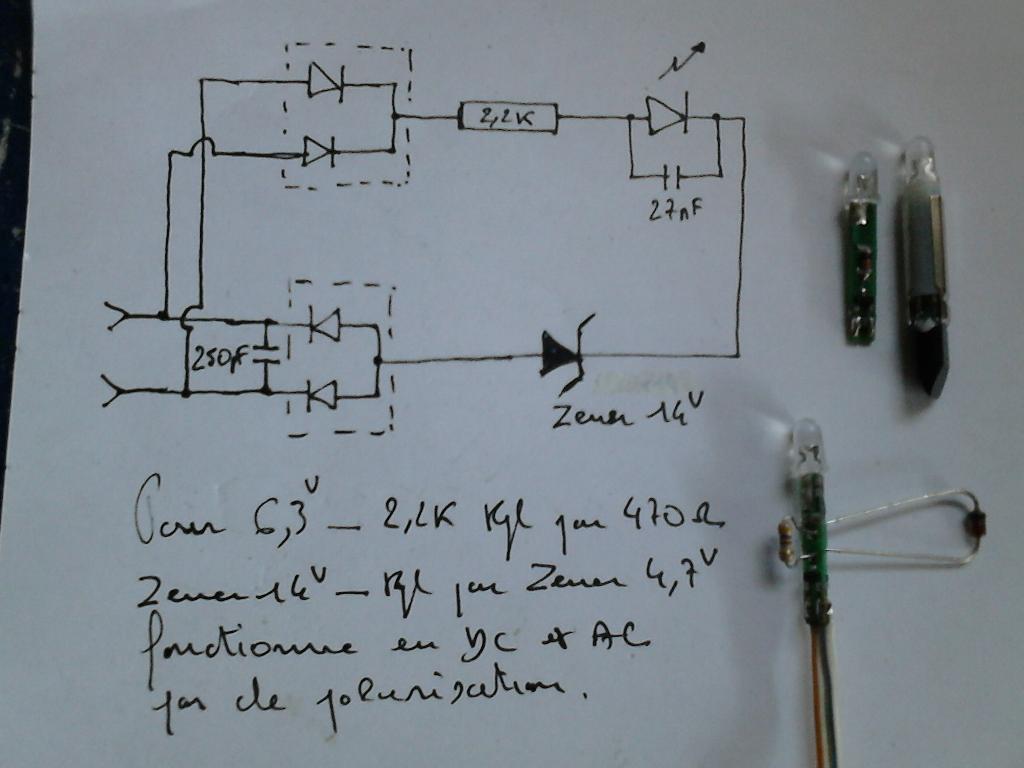 2,2K
27nF
250pF
Zener 14V
Pour 6,3V — 2,2K Rpl par 470Ω
Zener 14V — Rpl par Zener 4,7V
fonctionne en DC et AC
pas de polarisation.